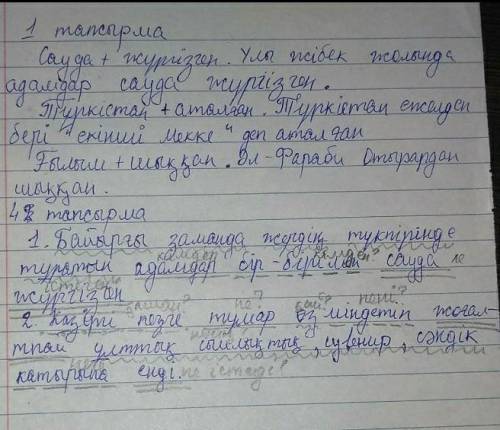 1 тапсырма
Сауда + жүргізген. Ұлы жібек жолында
адамдар сауда жүргізген.
Түркістан + аталған. Түркістан ежелден
бері "екінші Мекке" деп аталған
Ғылым + шыққан. Әл-Фараби Отырардан
шыққан.
4 тапсырма
1. Байырғы заманда жердің түкпірінде
кімдер?
тұратын адамдар бір-бірімен сауда не
жүргізген
қашан? не? қай? нені?
2. Қазіргі кезде тұмар өз міндетін жоғал-
тпай ұлттық сыйлықтық, сувенир, сәндік
қатарына енді. не істеді?